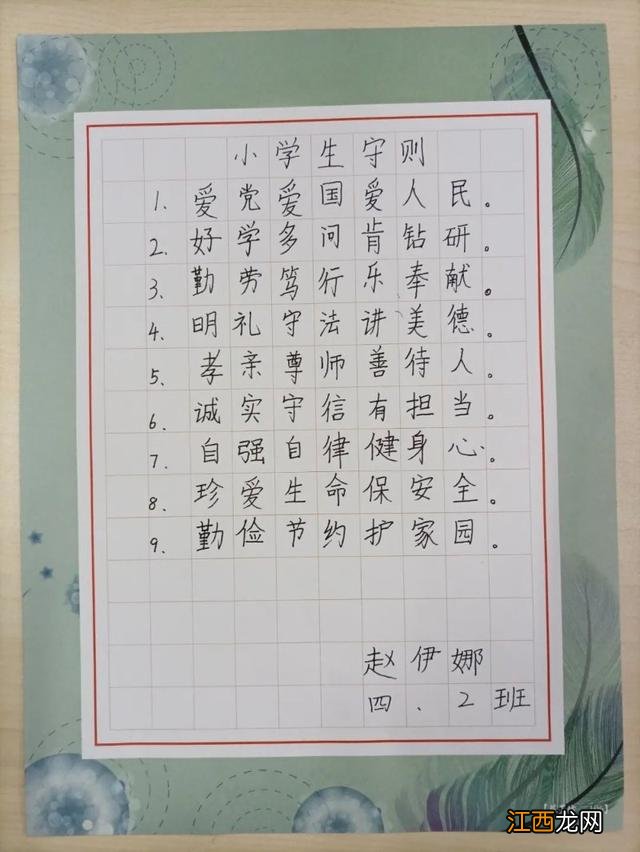 小学生守则
1. 爱党爱国爱人民。
2. 好学多问肯钻研。
3. 勤劳笃行乐奉献。
4. 明礼守法讲美德。
5. 孝亲尊师善待人。
6. 诚实守信有担当。
7. 自强自律健身心。
8. 珍爱生命保安全。
9. 勤俭节约护家园。
赵伊娜
四、2班
江西龙网